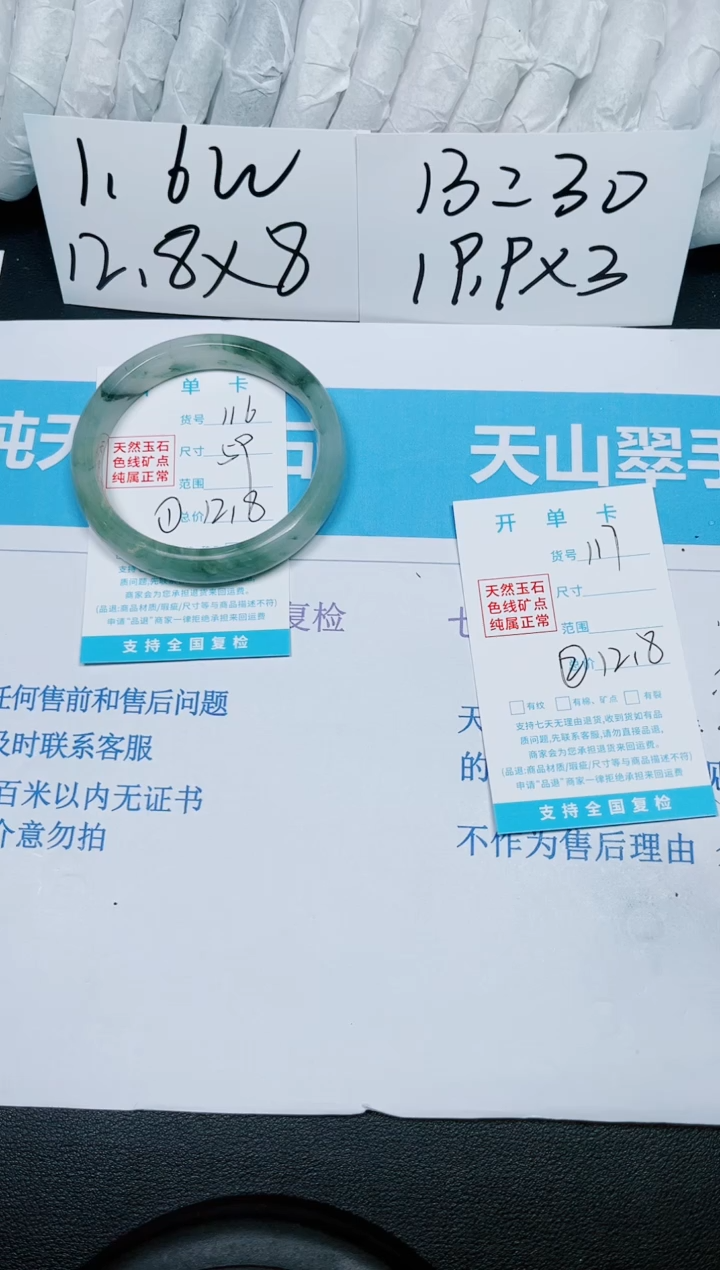 1.6W
12.8×8
13=30
19.9×3
纯天
石
天山翠手
开单卡
货号 116
天然玉石
色线矿点
纯属正常
尺寸 59
范围
总价 ①12.8
质问题,先联
商家会为您承担退货来回运费。
(品退:商品材质/瑕疵/尺寸等与商品描述不符)
申请“品退”商家一律拒绝承担来回运费
支持全国复检
复检
任何售前和售后问题
及时联系客服
百米以内无证书
介意勿拍
开单卡
货号 117
天然玉石
色线矿点
纯属正常
尺寸
范围
②12.8
有纹 有棉、矿点 有裂
支持七天无理由退货,收到货如有品
质问题,先联系客服,请勿直接品退,
商家会为您承担退货来回运费。
(品退:商品材质/瑕疵/尺寸等与商品描述不符)
申请“品退”商家一律拒绝承担来回运费
支持全国复检
七
天
的
不作为售后理由